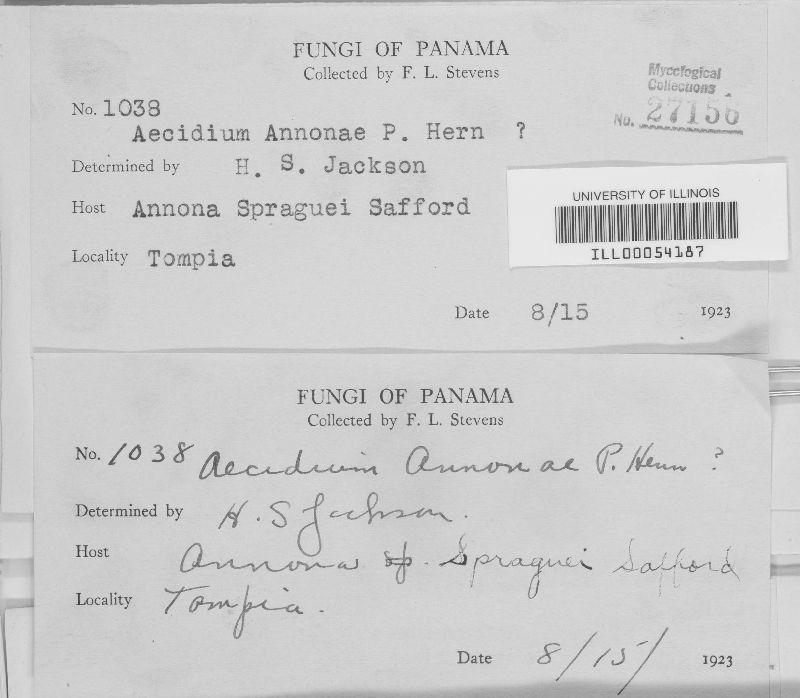 FUNGI OF PANAMA
Collected by F. L. Stevens
Mycological
Collections
No. 27156
No. 1038
Aecidium Annonae P. Hern ?
Determined by H. S. Jackson
Host Annona Spraguei Safford
Locality Tompia
UNIVERSITY OF ILLINOIS
ILL00054187
Date 8/15 1923
FUNGI OF PANAMA
Collected by F. L. Stevens
No. 1038 Aecidium Annonae P. Henn ?
Determined by H. S Jackson.
Host Annona sp. Spraguei Safford
Locality Tompia.
Date 8/15/ 1923